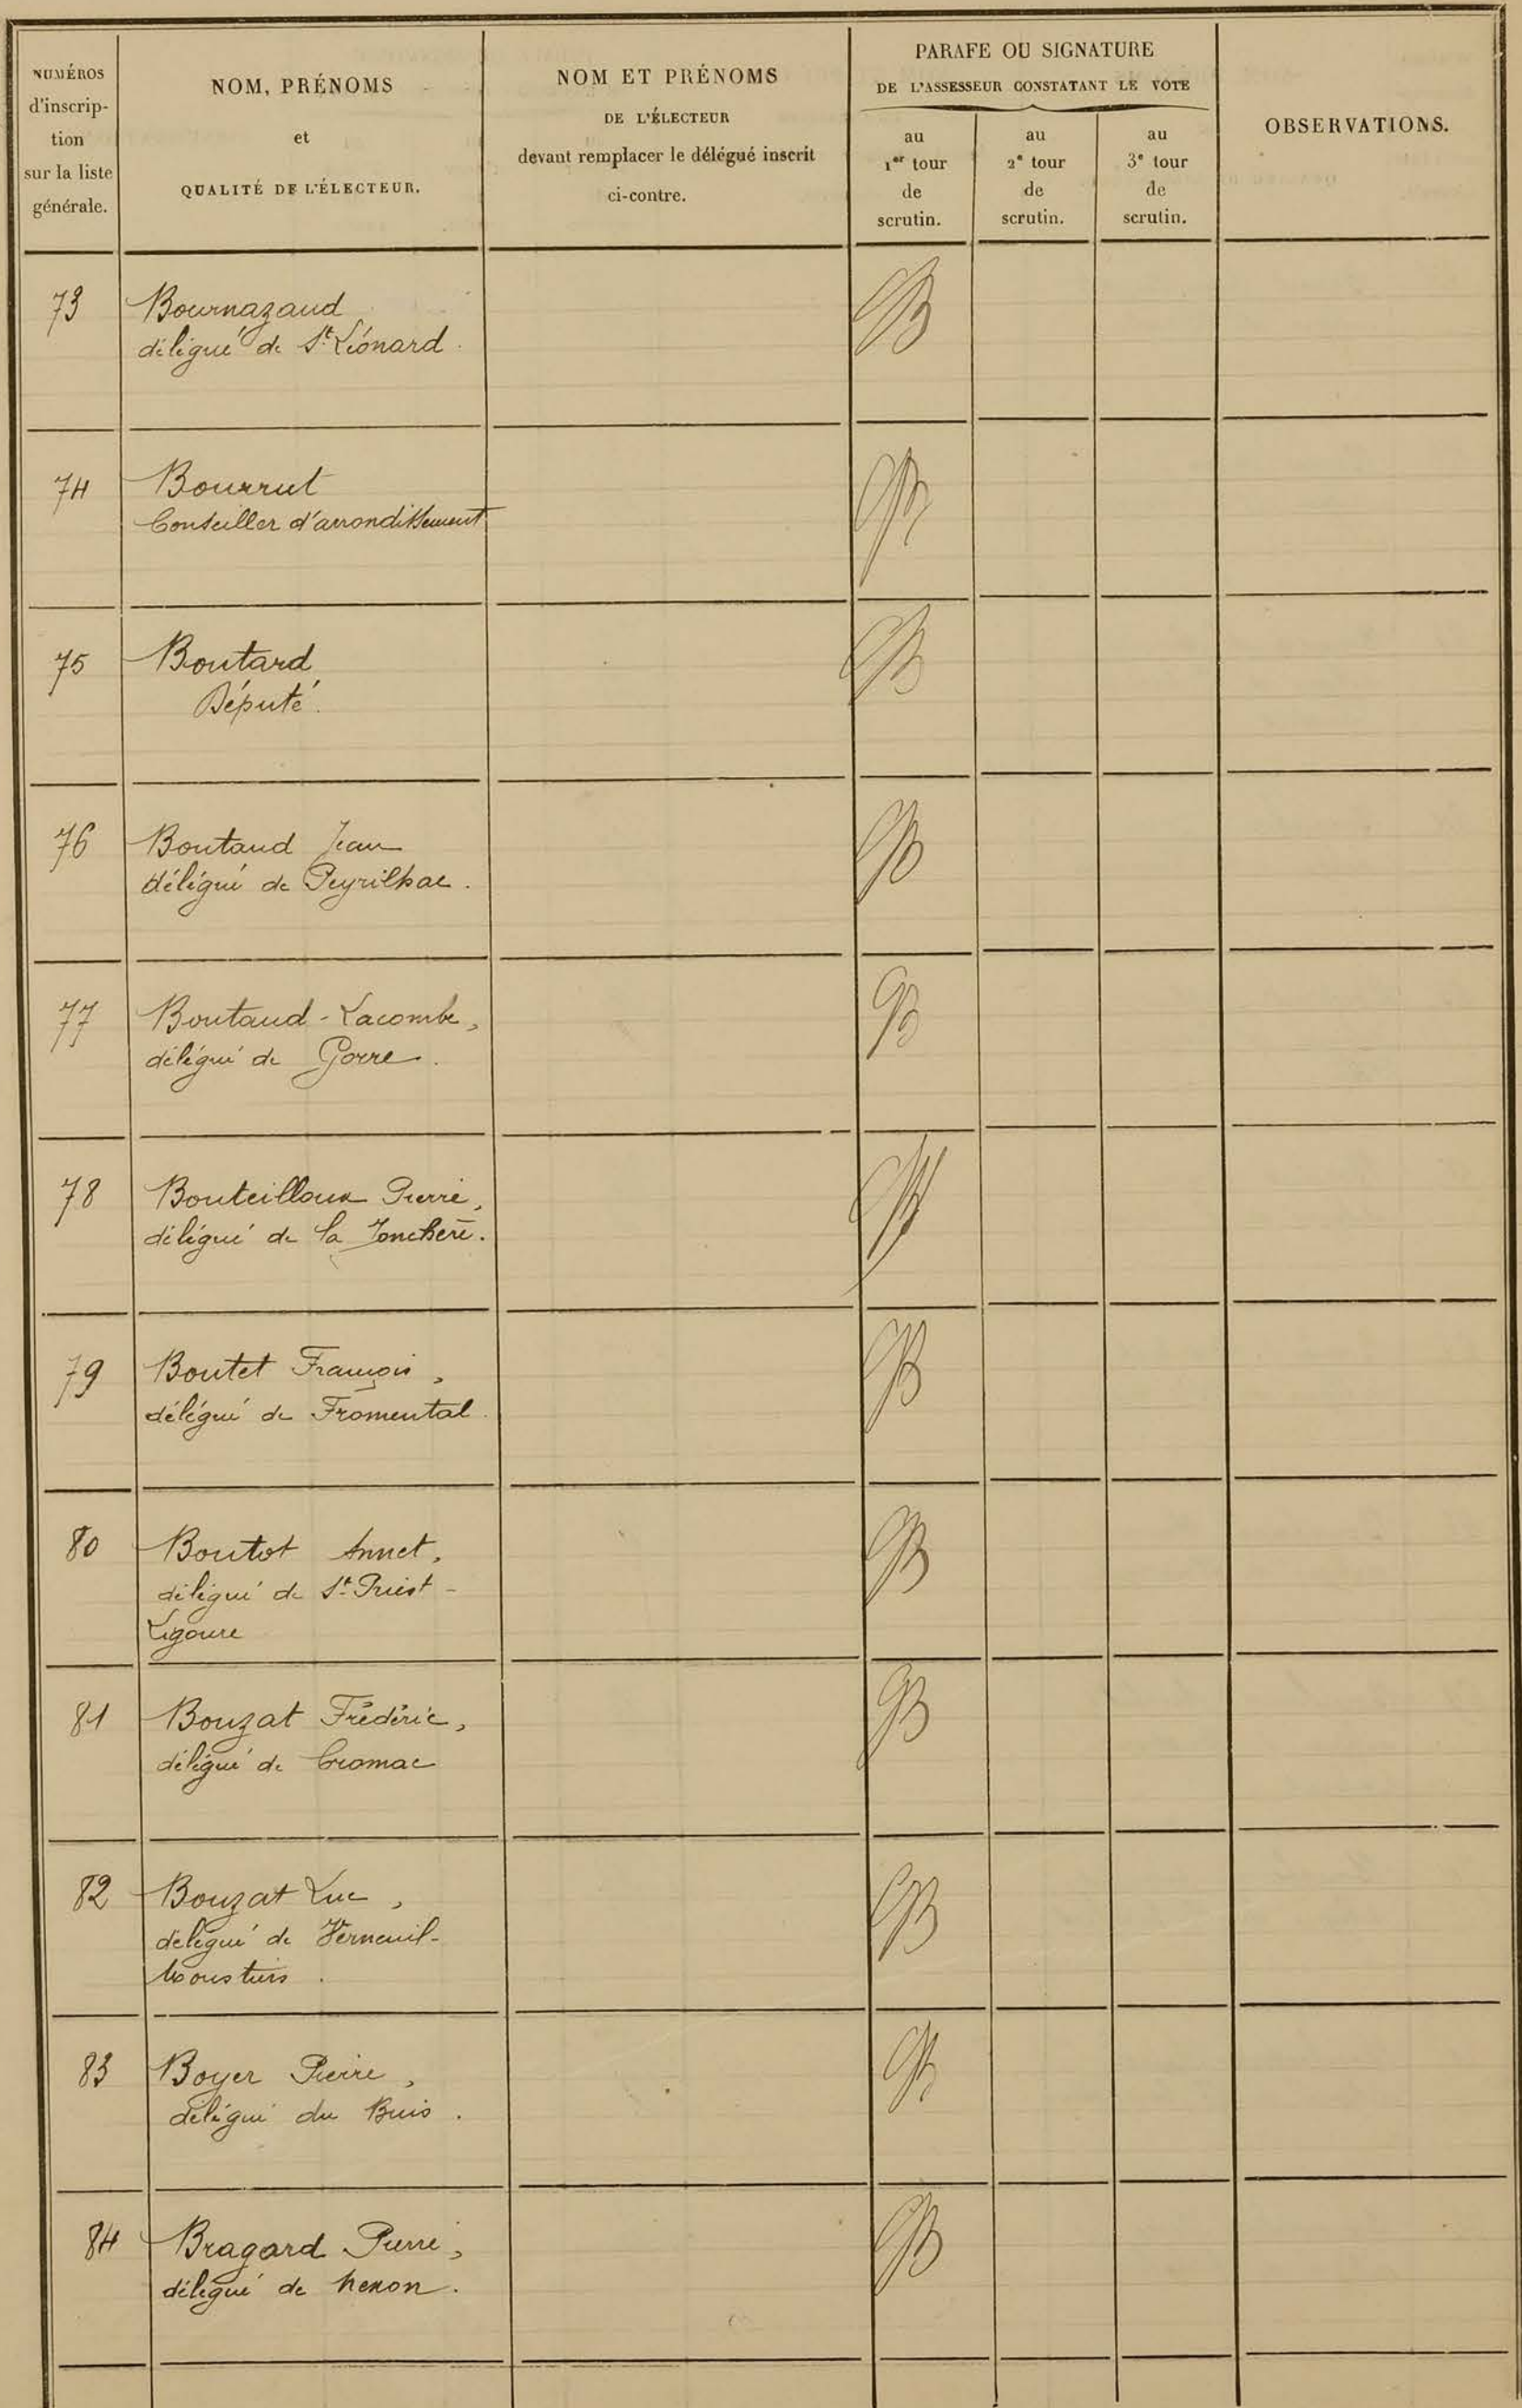 NUMÉROS
d'inscrip-
tion
sur la liste
générale.
NOM, PRÉNOMS
et
QUALITÉ DE L'ÉLECTEUR.
NOM ET PRÉNOMS
DE L'ÉLECTEUR
devant remplacer le délégué inscrit
ci-contre.
PARAFE OU SIGNATURE
DE L'ASSESSEUR CONSTATANT LE VOTE
au
1er tour
de
scrutin.
au
2e tour
de
scrutin.
au
3e tour
de
scrutin.
OBSERVATIONS.
73 Bournazaud
délégué de St Léonard.
74 Bourrut
Conseiller d'arrondissement
75 Boutard
Député.
76 Boutaud Jean
délégué de Peyrilhac.
77 Boutaud-Lacombe,
délégué de Gorre.
78 Bouteilloux Pierre,
délégué de la Jonchère.
79 Boutet François,
délégué de Fromental.
80 Boutot Annet,
délégué de St Priest-
Ligoure
81 Bouzat Frédéric,
délégué de Cromac
82 Bouzat Luc,
délégué de Verneuil-
Moustiers.
83 Boyer Pierre,
délégué du Buis.
84 Bragard Pierre,
délégué de Nexon.